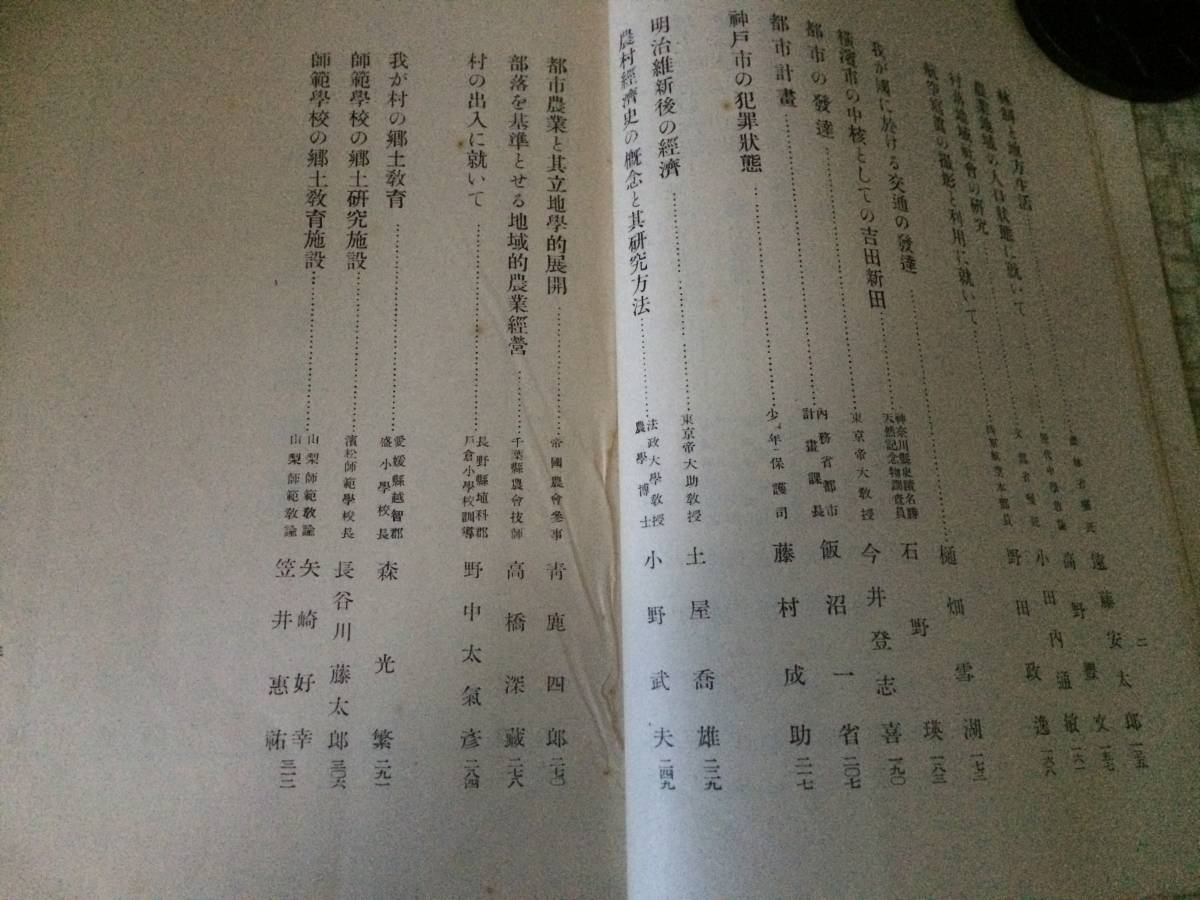 二
地方生活 遠藤安太郎
農業地域の人口状態に就いて
村落地域社會の研究
利用に就いて 野田政逸 一六八
我が國に於ける交通の發達 樋畑雪湖 一七三
横濱市の中核としての吉田新田 神奈川縣史蹟名勝天然記念物調査員 石野瑛 一八三
都市の發達 東京帝大教授 今井登志喜 一九〇
都市計畫 内務省都市計畫課長 飯沼一省 二〇七
神戸市の犯罪狀態 少年保護司 藤村成助 二一七
明治維新後の經濟 東京帝大助教授 土屋喬雄 二二九
農村經濟史の概念と其研究方法 法政大學教授農學博士 小野武夫 二四九
都市農業と其立地學的展開 帝國農會參事 青鹿四郎 二七〇
部落を基準とせる地域的農業經營 千葉縣農會技師 高橋深藏 二七八
村の出入に就いて 長野縣埴科郡戸倉小學校訓導 野中太氣彦 二八四
我が村の郷土教育 愛媛縣越智郡盛小學校長 森光繁 二九一
師範學校の郷土研究施設 濱松師範學校長 長谷川藤太郎 三〇六
師範學校の郷土教育施設 山梨師範教諭 矢崎好幸
山梨師範教諭 笠井惠祐 三一二